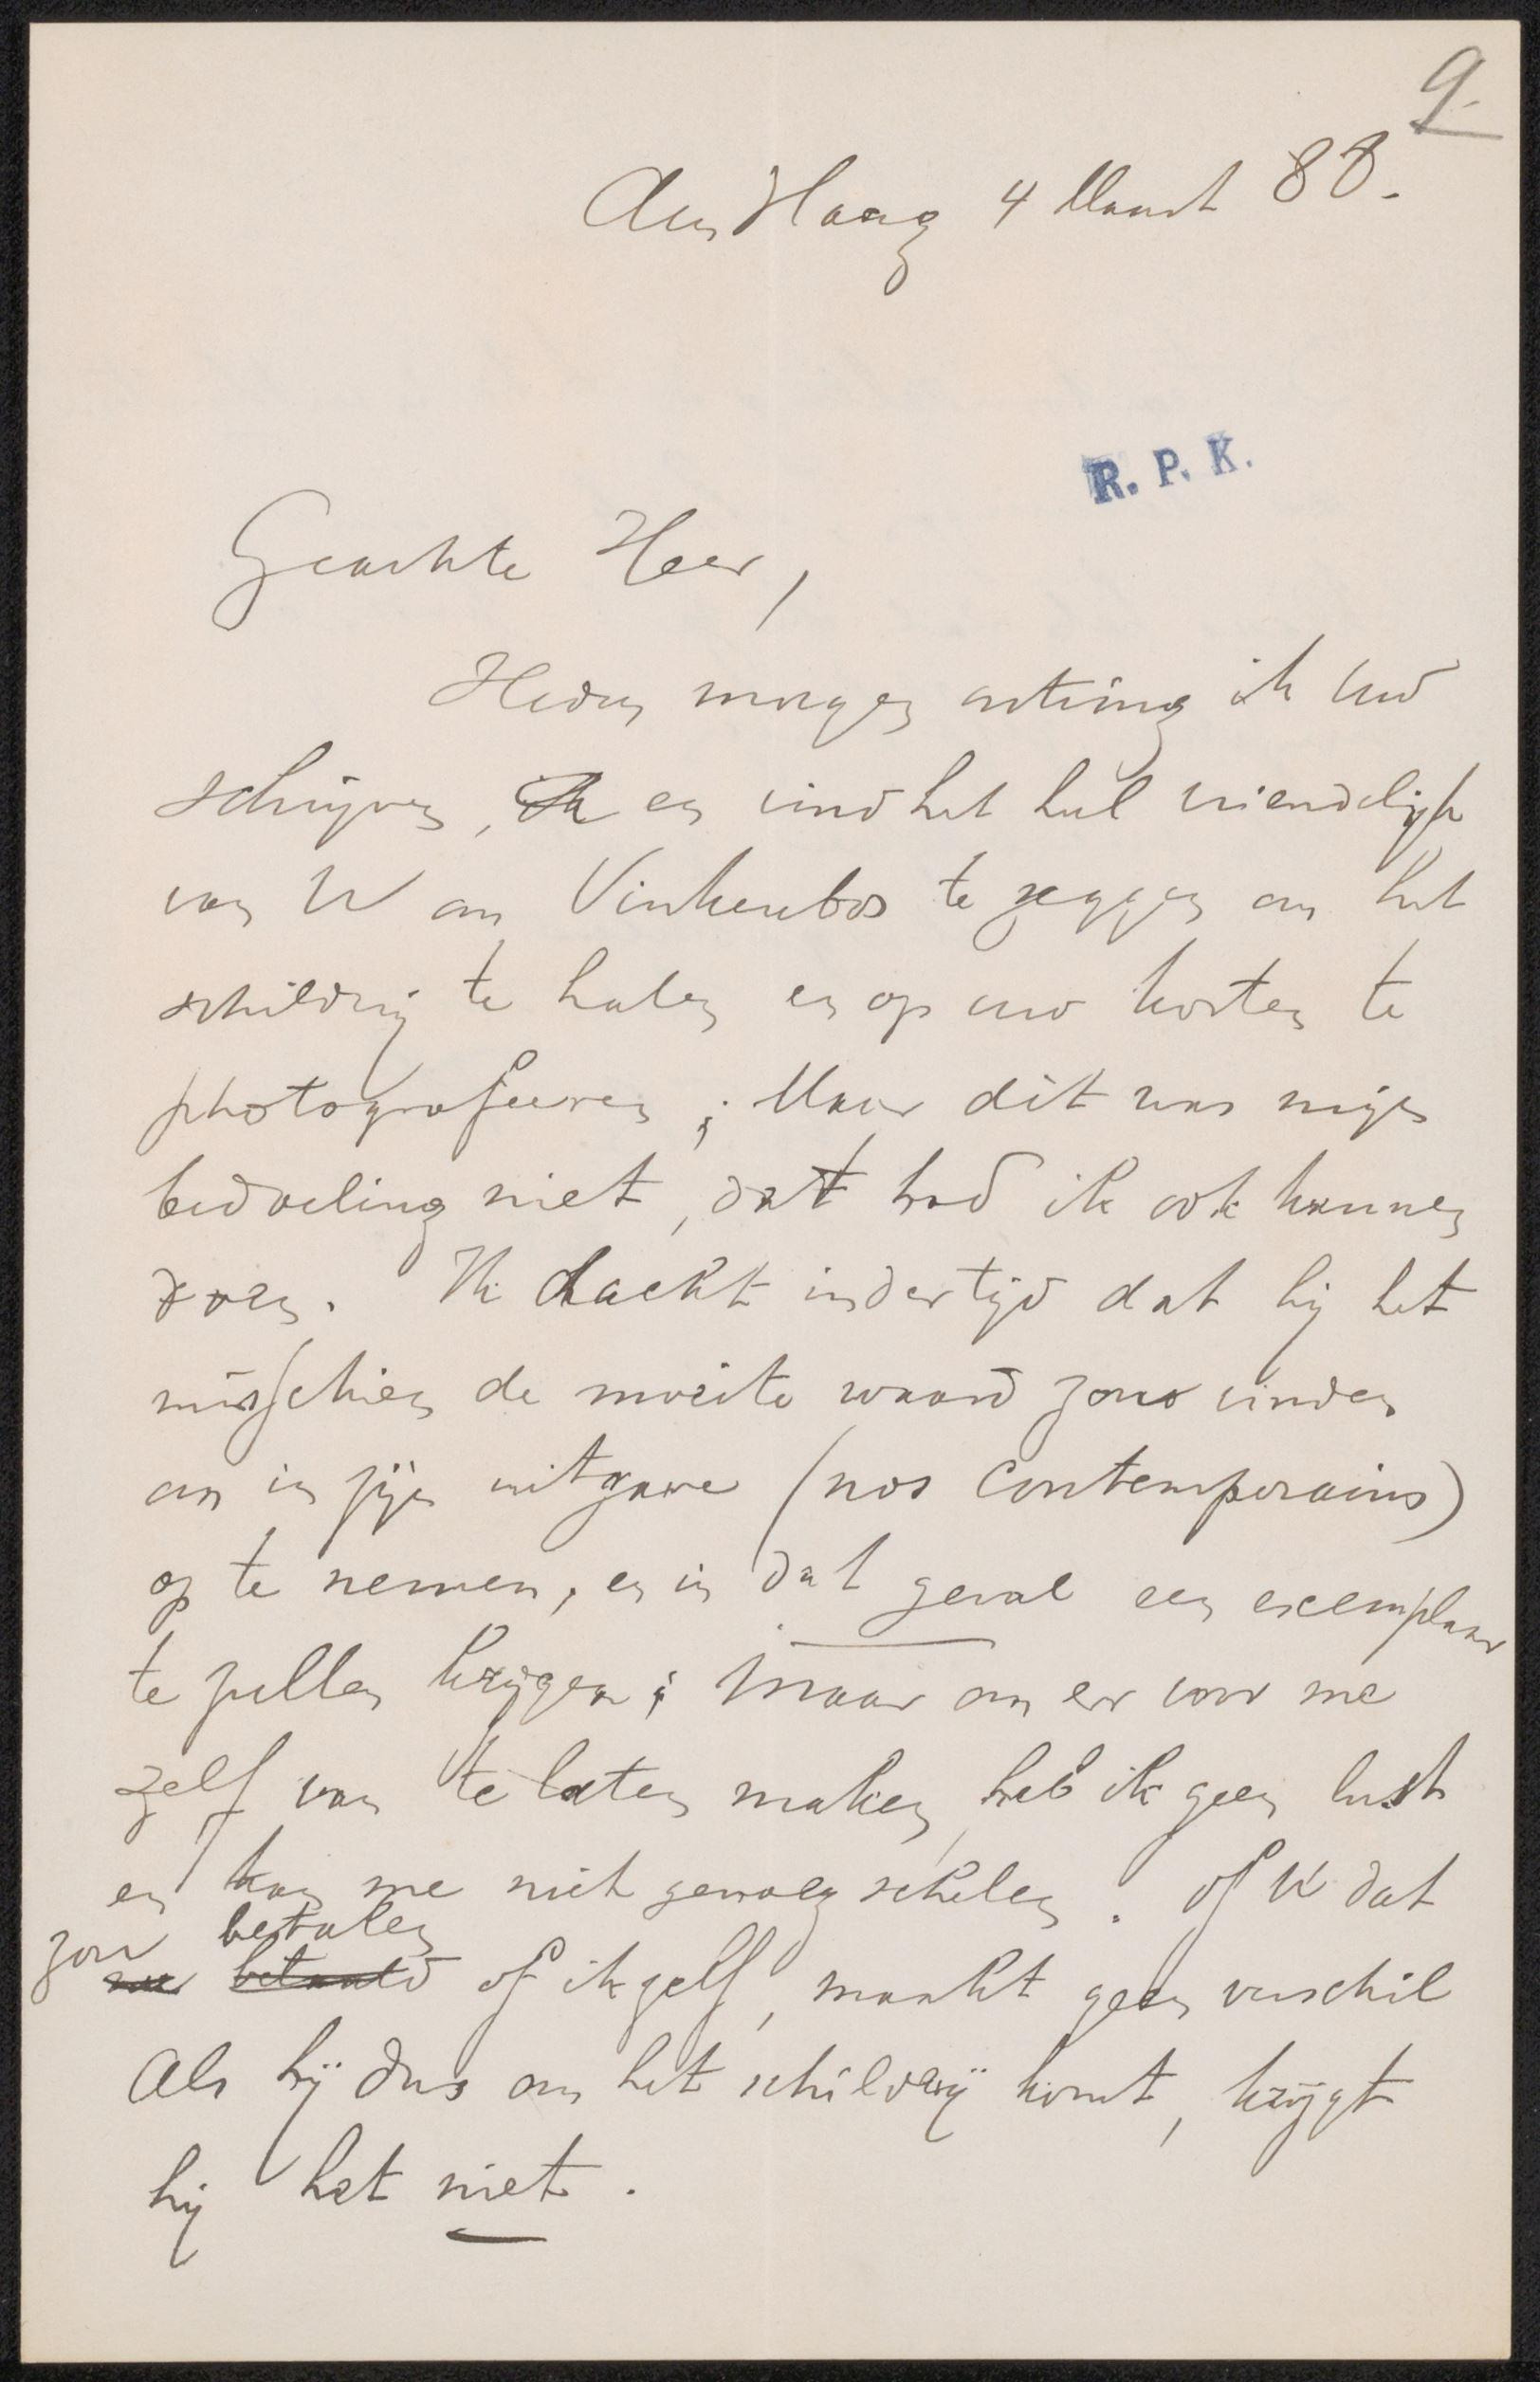 9.
Den Haag 4 Maart 88.
R. P. K.
Geachte Heer,
Heden morgen ontving ik Uw
schrijven, Ik en vind het heel vriendelijk
van U om Vinkenbos te zeggen om het
schilderij te halen en op uw kosten te
photografeeren; Maar dit was mijn
bedoeling niet, dat had ik ook kunnen
doen. Ik dacht indertijd dat hij het
misschien de moeite waard zou vinden
om in zijn uitgave (nos Contemporains)
op te nemen, en in dat geval een exemplaar
te zullen krijgen; maar om er voor me
zelf van te laten maken, heb ik geen lust
en kan me niet genoeg schelen. of U dat
zou betalen
betaald of ik zelf, maakt geen verschil
Als hij dus om het schilderij komt, krijgt
hij het niet.